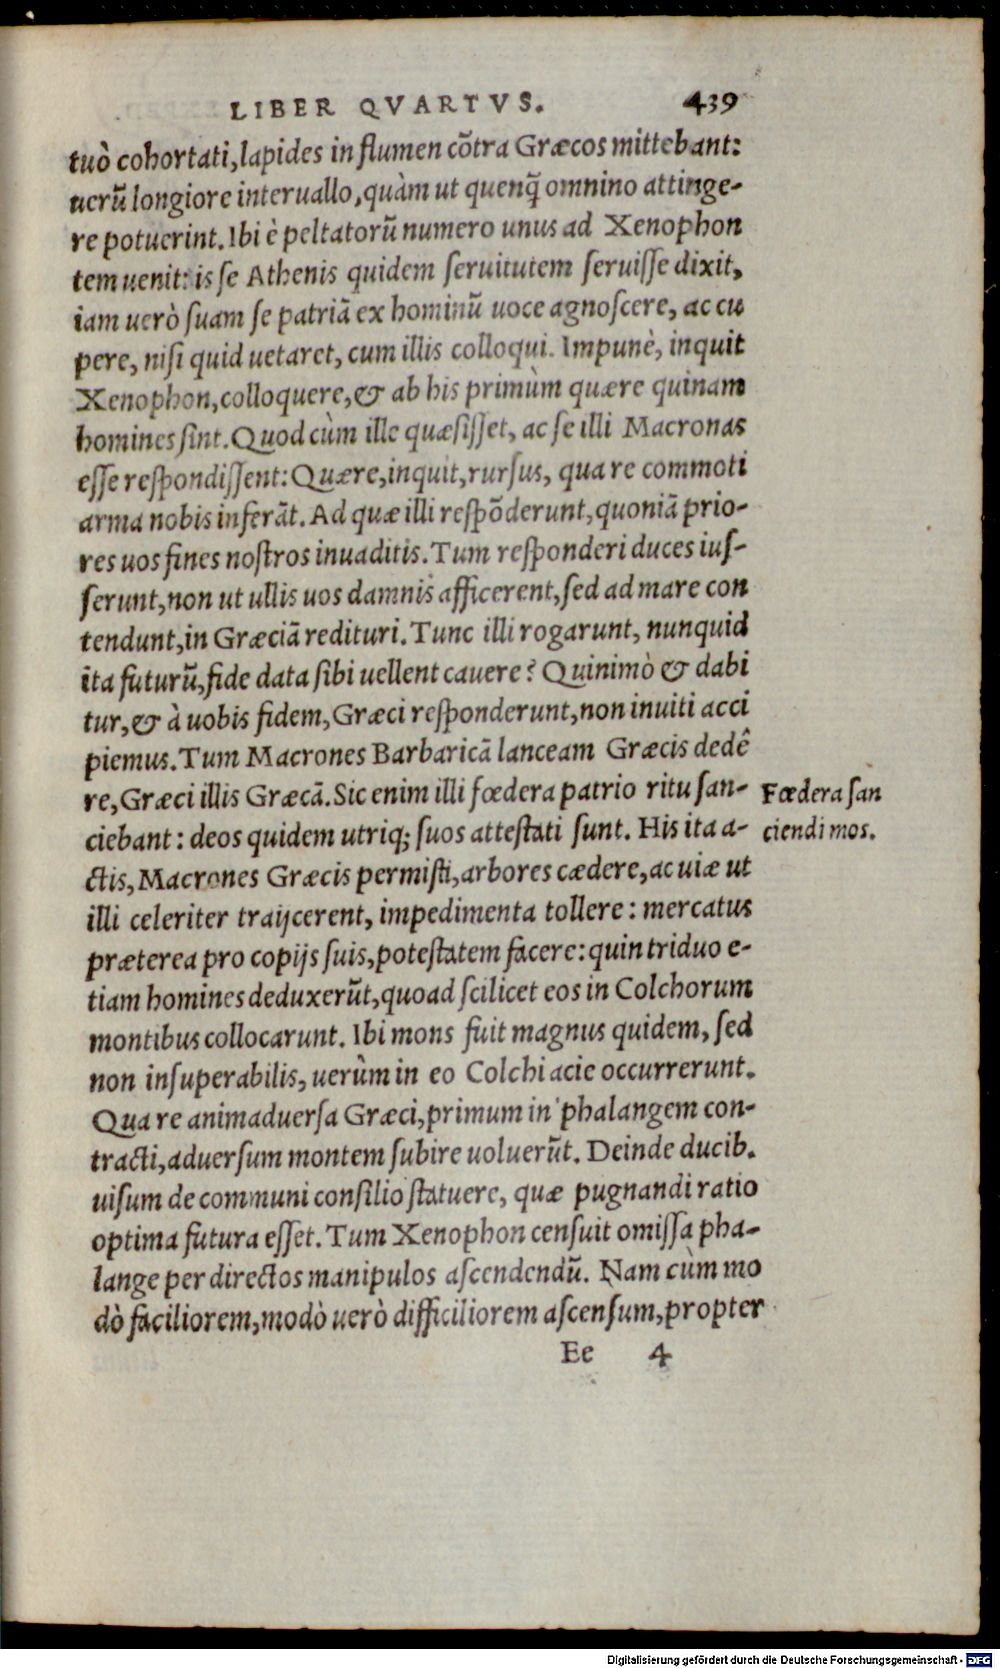 LIBER QVARTVS. 439
tuò cohortati, lapides in flumen cõtra Græcos mittebant:
uerũ longiore interuallo, quàm ut quenq̃ omnino attinge-
re potuerint. Ibi è peltatorũ numero unus ad Xenophon
tem uenit: is se Athenis quidem seruitutem seruisse dixit,
iam uerò suam se patriã ex hominũ uoce agnoscere, ac cu
pere, nisi quid uetaret, cum illis colloqui. Impunè, inquit
Xenophon, colloquere, & ab his primùm quære quinam
homines sint. Quod cùm ille quæsisset, ac se illi Macronas
esse respondissent: Quære, inquit, rursus, qua re commoti
arma nobis inferãt. Ad quæ illi respõderunt, quoniã prio-
res uos fines nostros inuaditis. Tum responderi duces ius-
serunt, non ut ullis uos damnis afficerent, sed ad mare con
tendunt, in Græciã redituri. Tunc illi rogarunt, nunquid
ita futurũ, fide data sibi uellent cauere? Quinimò & dabi
tur, & à uobis fidem, Græci responderunt, non inuiti acci
piemus. Tum Macrones Barbaricã lanceam Græcis dedê
re, Græci illis Græcã. Sic enim illi fœdera patrio ritu san-
ciebant: deos quidem utriq; suos attestati sunt. His ita a-
ctis, Macrones Græcis permisti, arbores cædere, ac uiæ ut
illi celeriter traijcerent, impedimenta tollere: mercatus
præterea pro copijs suis, potestatem facere: quin triduo e-
tiam homines deduxerũt, quoad scilicet eos in Colchorum
montibus collocarunt. Ibi mons fuit magnus quidem, sed
non insuperabilis, uerùm in eo Colchi acie occurrerunt.
Qua re animaduersa Græci, primum in phalangem con-
tracti, aduersum montem subire uoluerũt. Deinde ducib.
uisum de communi consilio statuere, quæ pugnandi ratio
optima futura esset. Tum Xenophon censuit omissa pha-
lange per directos manipulos ascendendũ. Nam cùm mo
dò faciliorem, modò uerò difficiliorem ascensum, propter
Ee 4
Fœdera san
ciendi mos.
Digitalisierung gefördert durch die Deutsche Forschungsgemeinschaft - DFG